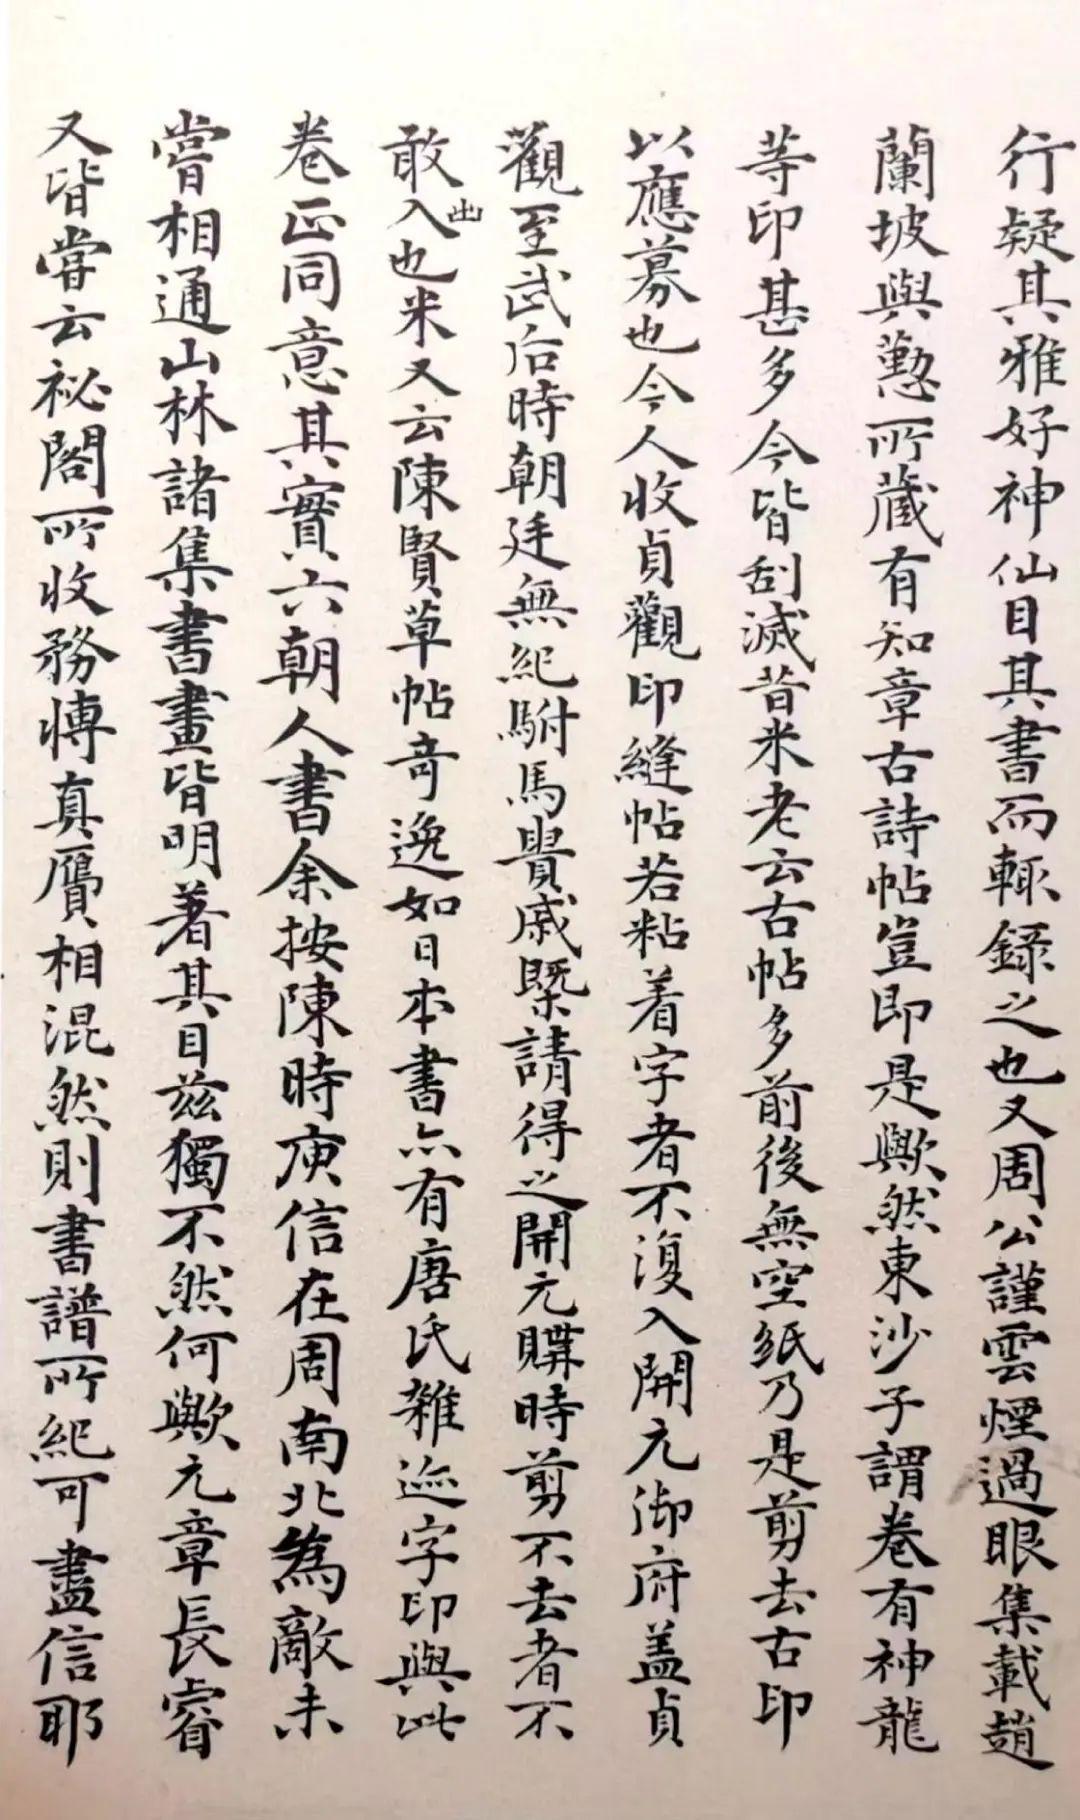 行疑其雅好神仙目其書而輙録之也又周公謹雲煙過眼集載趙
蘭坡與懃所藏有知章古詩帖豈即是歟然東沙子謂卷有神龍
等印甚多今皆刮滅昔米老云古帖多前後無空紙乃是剪去古印
以應募也今人收貞觀印縫帖若粘着字者不復入開元御府蓋貞
觀至武后時朝廷無紀駙馬貴戚槩請得之開元購時剪不去者不
敢出入也米又云陳賢草帖奇逸如日本書亦有唐氏雜迹字印與此
卷正同意其實六朝人書余按陳時庾信在周南北為敵未
嘗相通山林諸集書畫皆明著其目茲獨不然何歟元章長睿
又皆嘗云祕閣所收務博真贗相混然則書譜所紀可盡信耶